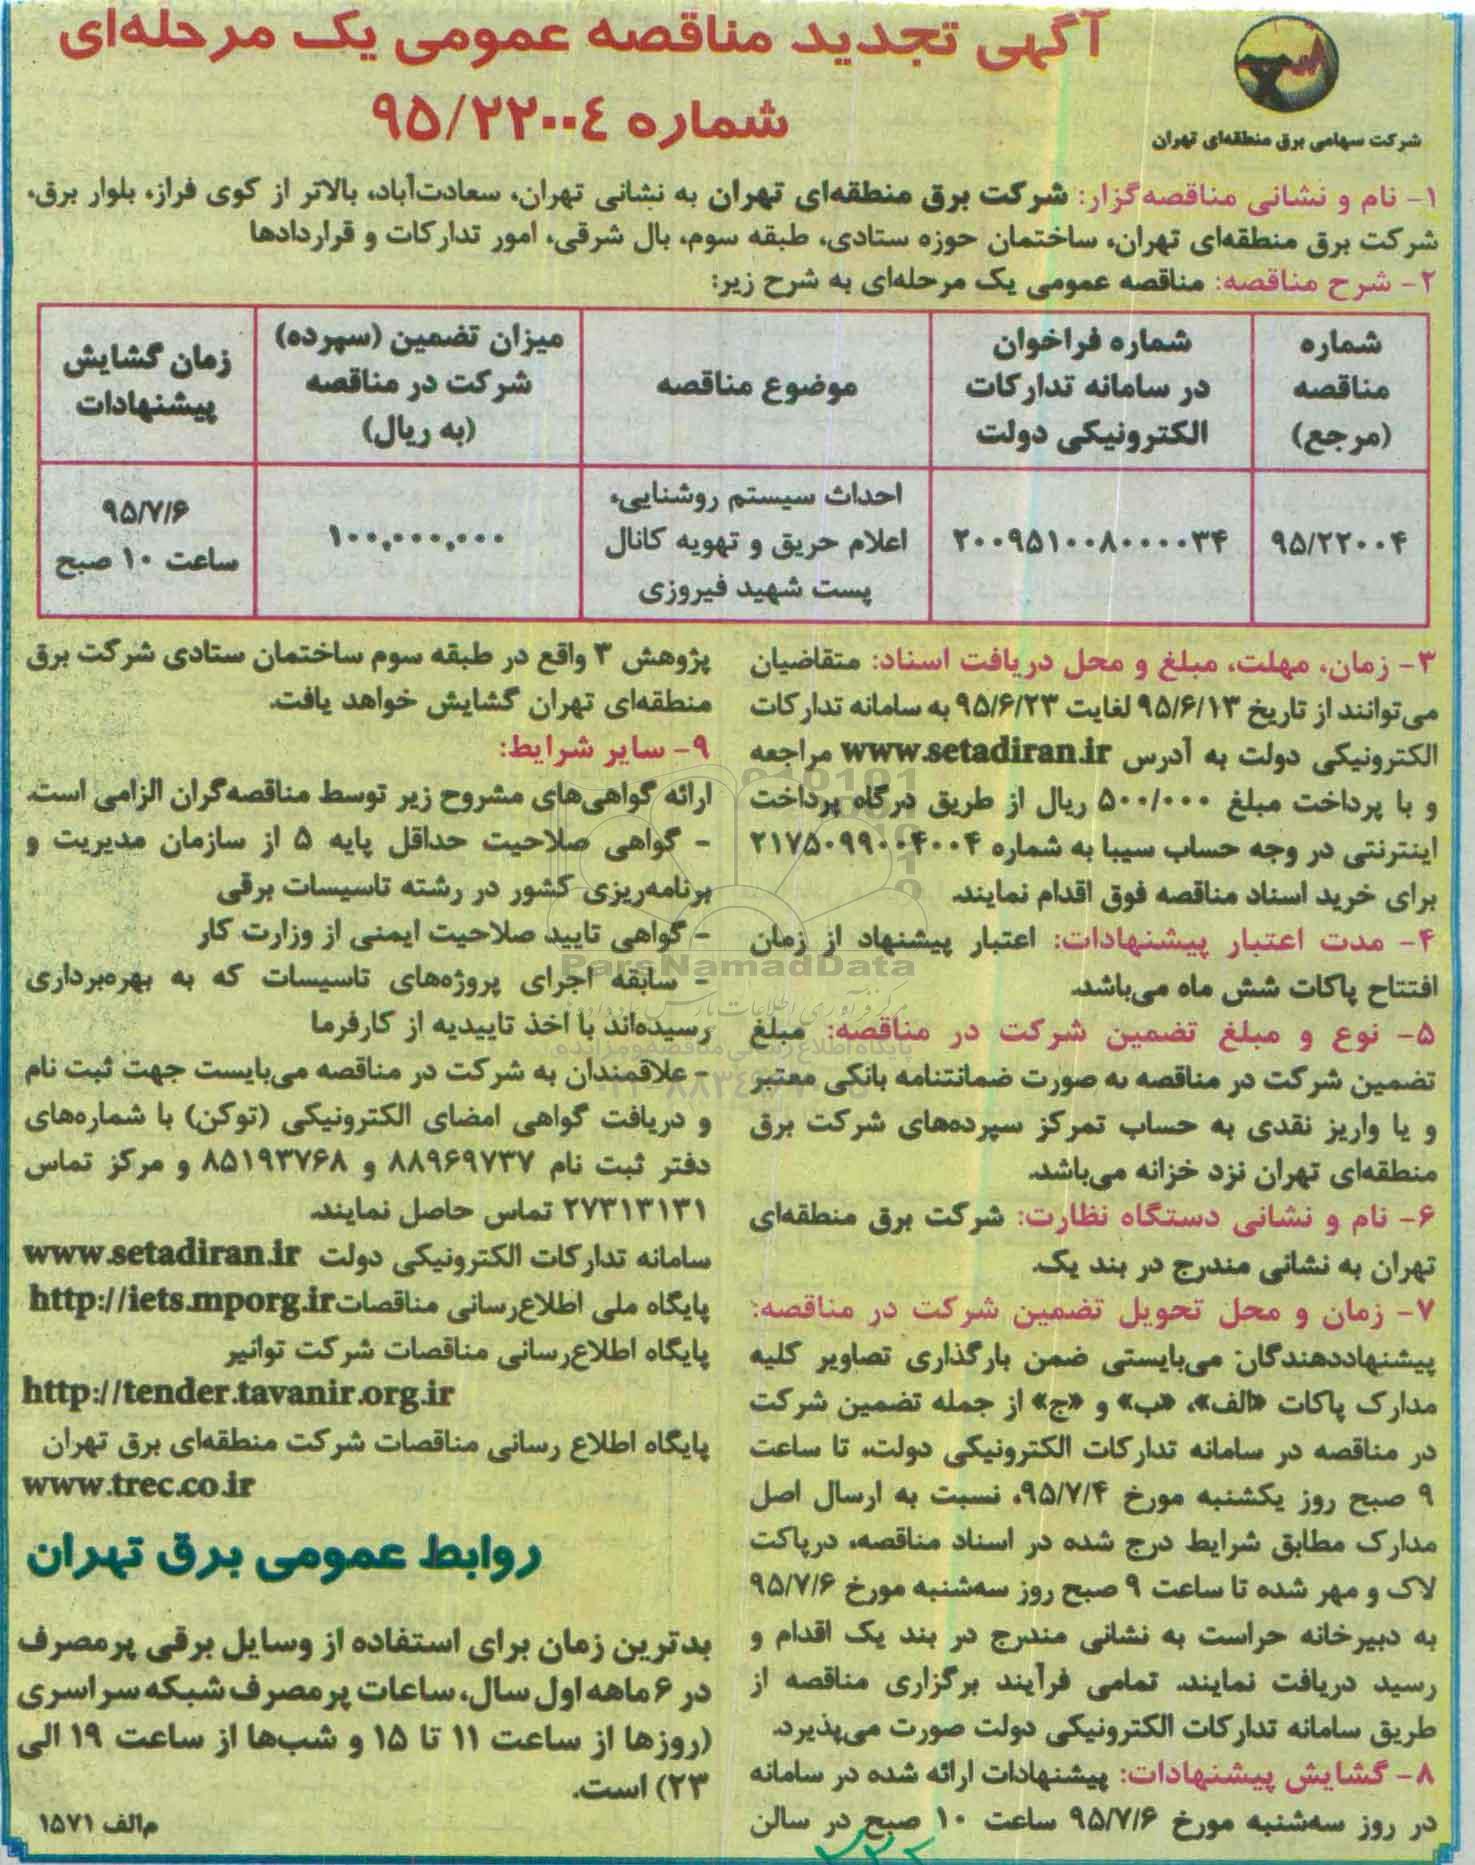 آگهی تجدید مناقصه عمومی یک مرحله‌ای
شماره ۹۵/۲۲۰۰۴
شرکت سهامی برق منطقه‌ای تهران
۱- نام و نشانی مناقصه‌گزار: شرکت برق منطقه‌ای تهران به نشانی تهران، سعادت‌آباد، بالاتر از کوی فراز، بلوار برق،
شرکت برق منطقه‌ای تهران، ساختمان حوزه ستادی، طبقه سوم، بال شرقی، امور تدارکات و قراردادها
۲- شرح مناقصه: مناقصه عمومی یک مرحله‌ای به شرح زیر:
شماره
مناقصه
(مرجع)
شماره فراخوان
در سامانه تدارکات
الکترونیکی دولت
موضوع مناقصه
میزان تضمین (سپرده)
شرکت در مناقصه
(به ریال)
زمان گشایش
پیشنهادات
۹۵/۲۲۰۰۴
۲۰۰۹۵۱۰۰۸۰۰۰۰۳۴
احداث سیستم روشنایی،
اعلام حریق و تهویه کانال
پست شهید فیروزی
۱۰۰,۰۰۰,۰۰۰
۹۵/۷/۶
ساعت ۱۰ صبح
۳- زمان، مهلت، مبلغ و محل دریافت اسناد: متقاضیان
می‌توانند از تاریخ ۹۵/۶/۱۳ لغایت ۹۵/۶/۲۳ به سامانه تدارکات
الکترونیکی دولت به آدرس www.setadiran.ir مراجعه
و با پرداخت مبلغ ۵۰۰/۰۰۰ ریال از طریق درگاه پرداخت
اینترنتی در وجه حساب سیبا به شماره ۲۱۷۵۰۹۹۰۰۴۰۰۴
برای خرید اسناد مناقصه فوق اقدام نمایند.
۴- مدت اعتبار پیشنهادات: اعتبار پیشنهاد از زمان
افتتاح پاکات شش ماه می‌باشد.
۵- نوع و مبلغ تضمین شرکت در مناقصه: مبلغ
تضمین شرکت در مناقصه به صورت ضمانتنامه بانکی معتبر
و یا واریز نقدی به حساب تمرکز سپرده‌های شرکت برق
منطقه‌ای تهران نزد خزانه می‌باشد.
۶- نام و نشانی دستگاه نظارت: شرکت برق منطقه‌ای
تهران به نشانی مندرج در بند یک.
۷- زمان و محل تحویل تضمین شرکت در مناقصه:
پیشنهاددهندگان می‌بایستی ضمن بارگذاری تصاویر کلیه
مدارک پاکات «الف»، «ب» و «ج» از جمله تضمین شرکت
در مناقصه در سامانه تدارکات الکترونیکی دولت، تا ساعت
۹ صبح روز یکشنبه مورخ ۹۵/۷/۴، نسبت به ارسال اصل
مدارک مطابق شرایط درج شده در اسناد مناقصه، درپاکت
لاک و مهر شده تا ساعت ۹ صبح روز سه‌شنبه مورخ ۹۵/۷/۶
به دبیرخانه حراست به نشانی مندرج در بند یک اقدام و
رسید دریافت نمایند. تمامی فرآیند برگزاری مناقصه از
طریق سامانه تدارکات الکترونیکی دولت صورت می‌پذیرد.
۸- گشایش پیشنهادات: پیشنهادات ارائه شده در سامانه
در روز سه‌شنبه مورخ ۹۵/۷/۶ ساعت ۱۰ صبح در سالن
پژوهش ۳ واقع در طبقه سوم ساختمان ستادی شرکت برق
منطقه‌ای تهران گشایش خواهد یافت.
۹- سایر شرایط:
ارائه گواهی‌های مشروح زیر توسط مناقصه‌گران الزامی است.
- گواهی صلاحیت حداقل پایه ۵ از سازمان مدیریت و
برنامه‌ریزی کشور در رشته تاسیسات برقی
- گواهی تایید صلاحیت ایمنی از وزارت کار
- سابقه اجرای پروژه‌های تاسیسات که به بهره‌برداری
رسیده‌اند با اخذ تاییدیه از کارفرما
- علاقمندان به شرکت در مناقصه می‌بایست جهت ثبت نام
و دریافت گواهی امضای الکترونیکی (توکن) با شماره‌های
دفتر ثبت نام ۸۸۹۶۹۷۳۷ و ۸۵۱۹۳۷۶۸ و مرکز تماس
۲۷۳۱۳۱۳۱ تماس حاصل نمایند.
سامانه تدارکات الکترونیکی دولت www.setadiran.ir
پایگاه ملی اطلاع‌رسانی مناقصات http://iets.mporg.ir
پایگاه اطلاع‌رسانی مناقصات شرکت توانیر
http://tender.tavanir.org.ir
پایگاه اطلاع رسانی مناقصات شرکت منطقه‌ای برق تهران
www.trec.co.ir
روابط عمومی برق تهران
بدترین زمان برای استفاده از وسایل برقی پرمصرف
در ۶ ماهه اول سال، ساعات پرمصرف شبکه سراسری
(روزها از ساعت ۱۱ تا ۱۵ و شب‌ها از ساعت ۱۹ الی
۲۳) است.
م‌الف ۱۵۷۱
ParsNamadData
پایگاه اطلاع رسانی مناقصه و مزایده